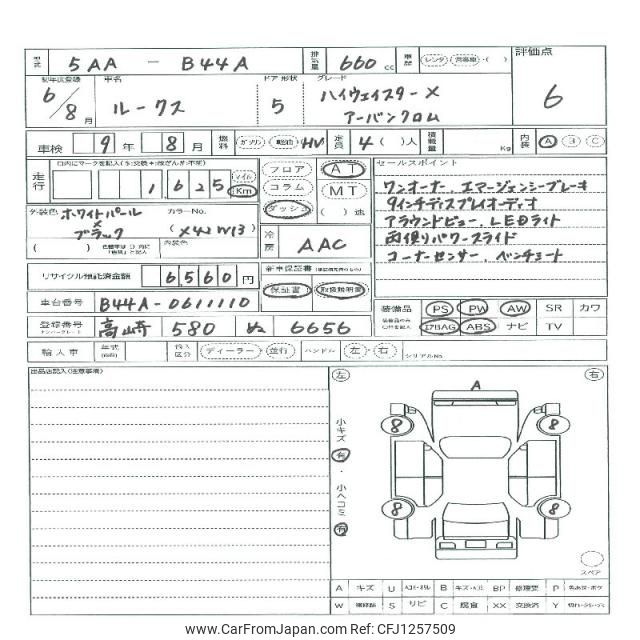 型式 5AA - B44A 排気量 660 cc 車歴 レンタ 営業車 ( ) 評価点
初年度登録 車名 ドア 形状 グレード
6/8月 ルークス 5 ハイウェイスターX 6
アーバンクロム
車検 9年 8月 燃料 ガソリン 軽油 HV 定員 4 ( )人 積載量 Kg 内装 A B C
走行 1625 マイル Km フロア AT セールスポイント
コラム MT ワンオーナー、エマージェンシーブレーキ
外装色 ホワイトパール カラーNo. ダッシュ ( )速 9インチディスプレイオーディオ
× ブラック (X4J W13) アラウンドビュー、LEDライト
( ) 内装色 冷房 AAC 両側パワースライド
コーナーセンサー、ベンチシート
リサイクル預託済金額 6,560円 新車保証書
保証書 取扱説明書
車台番号 B44A-0611110 装備品 PS PW AW SR カワ
登録番号 高崎 580 ぬ 6656 エアBAG ABS ナビ TV
輸入車 年式 仕入区分 ディーラー・並行 ハンドル 左・右 シリアルNo.
出品店記入(注意事項) 左 右
A
小キズ 有 8 8
小ヘコミ 有 8 8
スペア
A キズ U B キズ・ヘコミ BP 修理要 P 色あせ・ボケ
W S サビ C 腐食 XX 交換済 Y
www.CarFromJapan.com - CFJ1257509